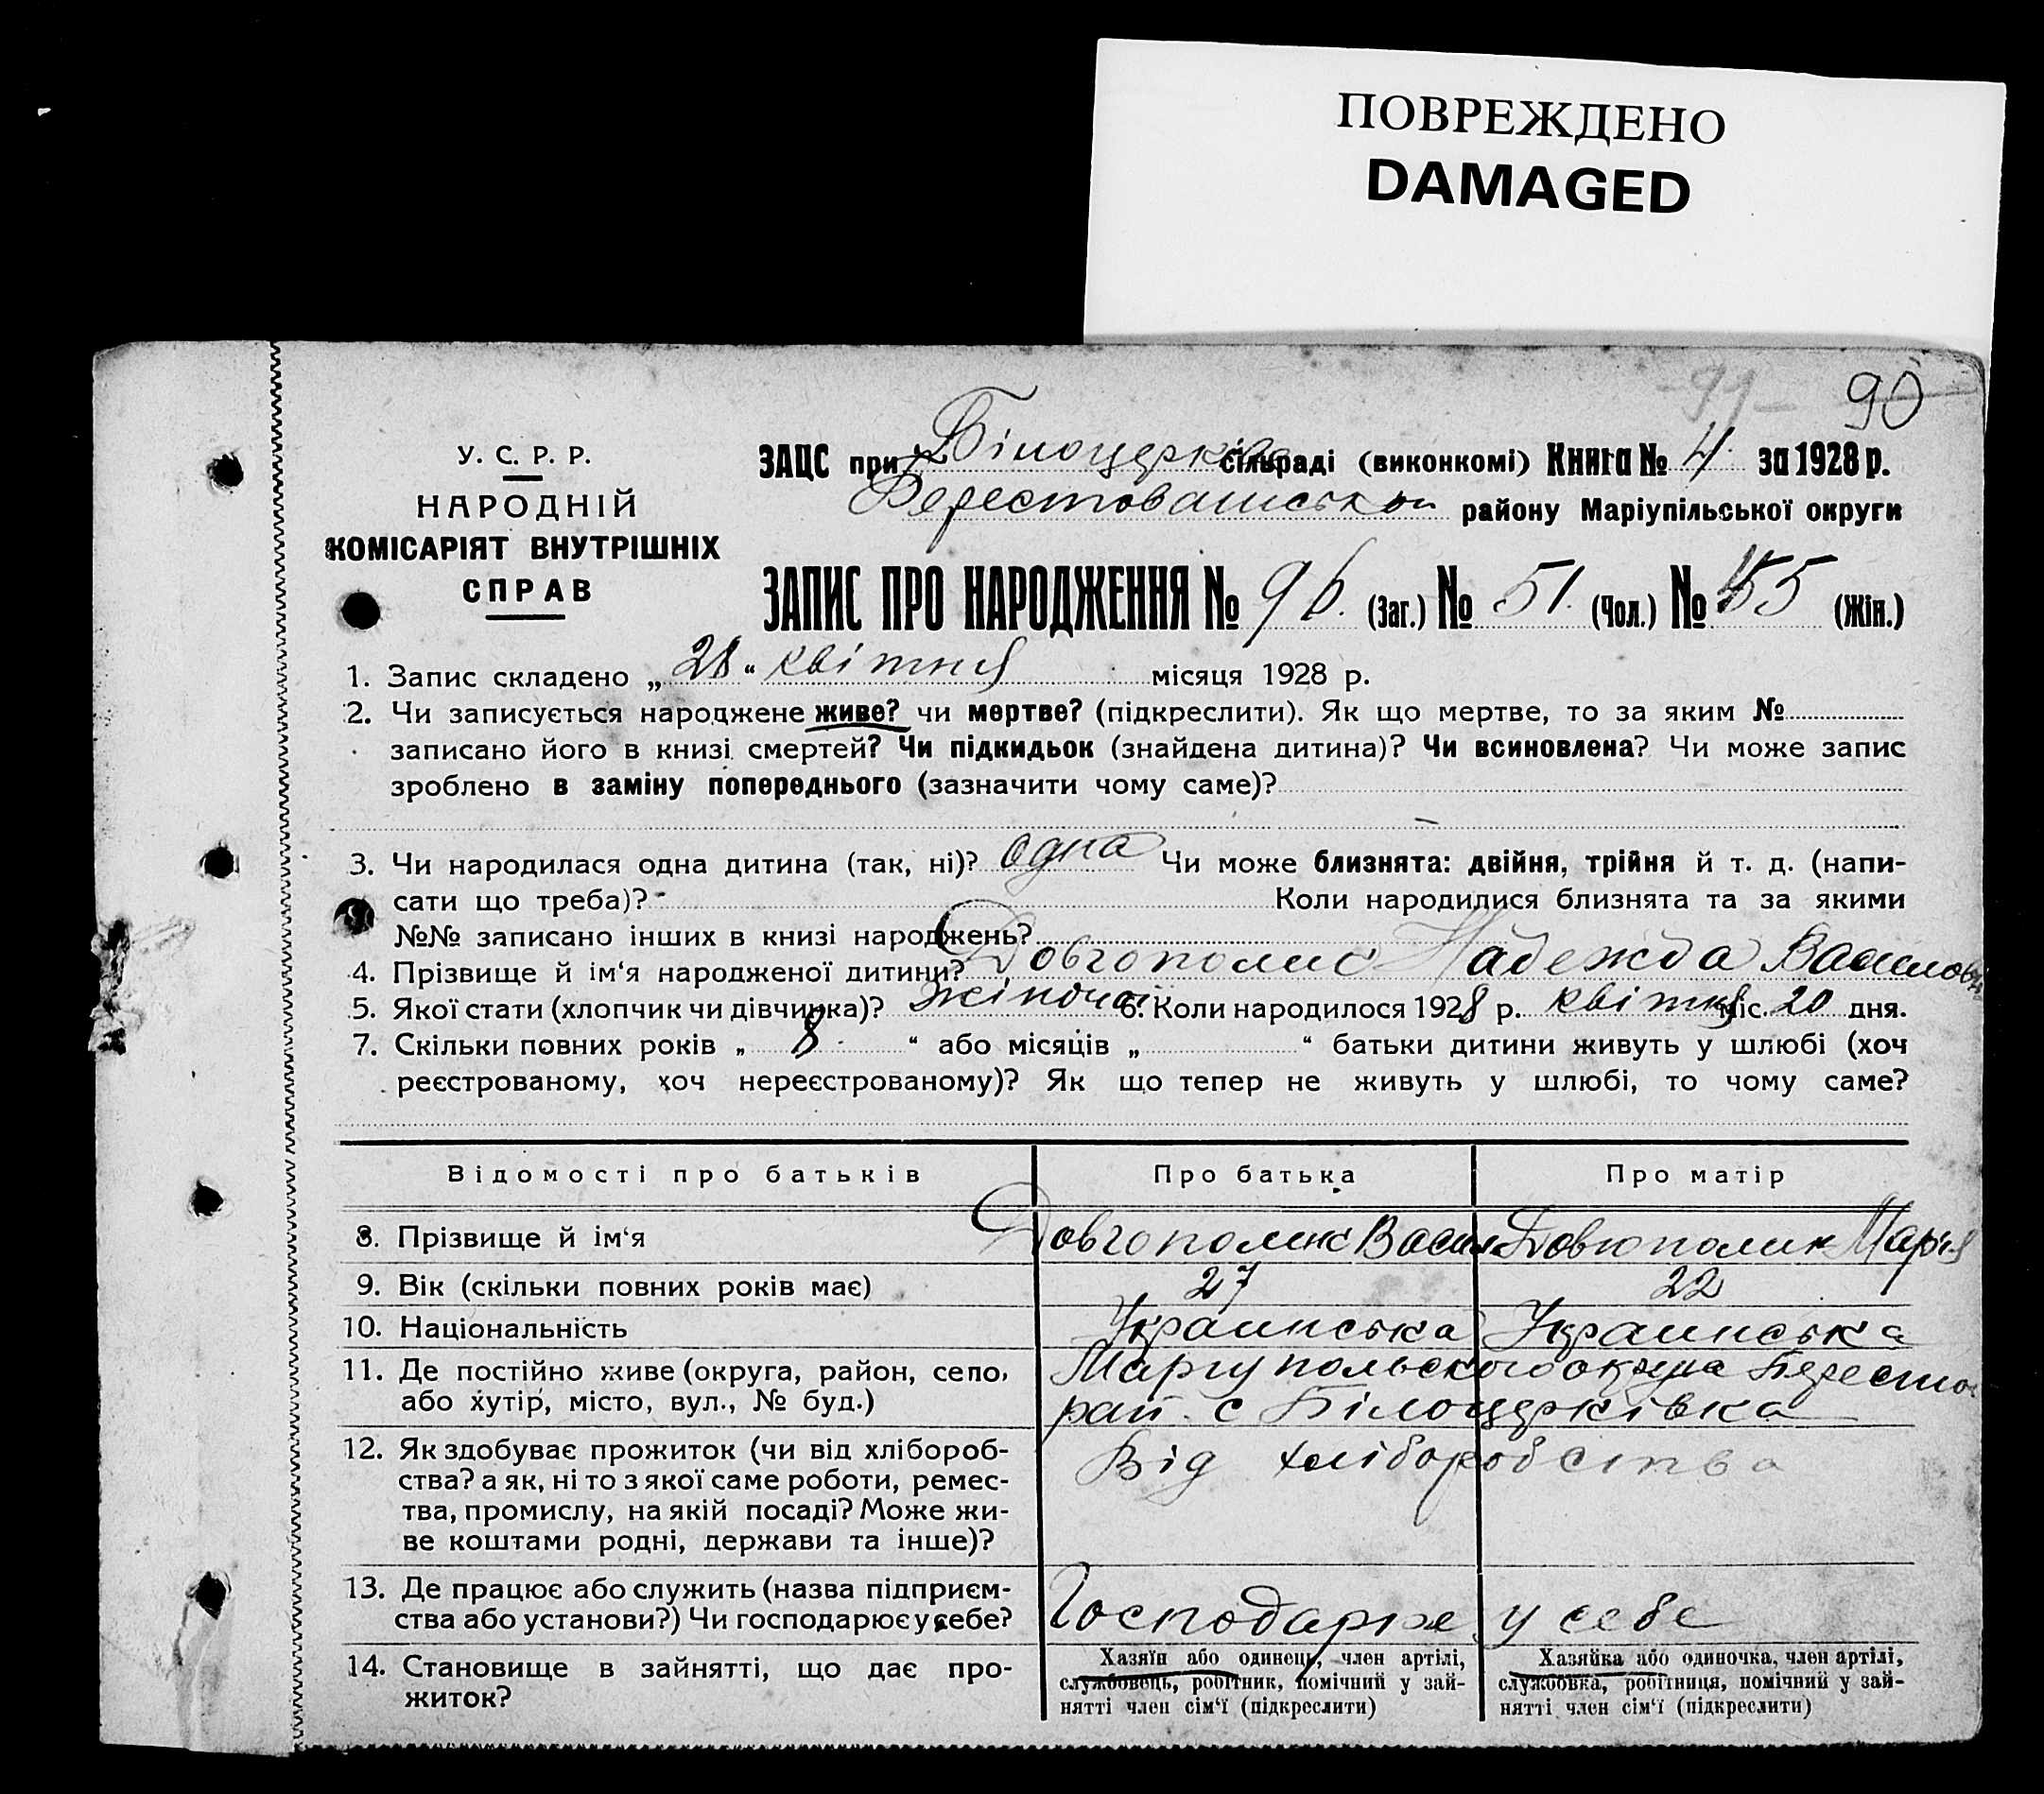 ПОВРЕЖДЕНО
DAMAGED
91 —
90
У. С. Р. Р.
НАРОДНІЙ
КОМІСАРІЯТ ВНУТРІШНІХ
СПРАВ
ЗАЦС при Білоцерків сільраді (виконкомі) Книга № 4 за 1928 р.
району Маріупільської округи
ЗАПИС ПРО НАРОДЖЕННЯ № 96. (Заг.) № 51. (Чол.) № 45 (Жін.)
1. Запис складено „ 28 “ квітня місяця 1928 р.
2. Чи записується народжене живе? чи мертве? (підкреслити). Як що мертве, то за яким №
записано його в книзі смертей? Чи підкидьок (знайдена дитина)? Чи всиновлена? Чи може запис
зроблено в заміну попереднього (зазначити чому саме)?
3. Чи народилася одна дитина (так, ні)? одна Чи може близнята: двійня, трійня й т. д. (напи-
сати що треба)? - Коли народилися близнята та за якими
№№ записано інших в книзі народжень?
4. Прізвище й ім‘я народженої дитини? Довгополик Надежда
5. Якої стати (хлопчик чи дівчинка)? жіночої 6. Коли народилося 1928 р. квітня міс. 20 дня.
7. Скільки повних років „ 8 “ або місяців „ “ батьки дитини живуть у шлюбі (хоч
реєстрованому, хоч нереєстрованому)? Як що тепер не живуть у шлюбі, то чому саме?
Відомості про батьків Про батька Про матір
8. Прізвище й ім‘я Довгополик Васил Довгополик Марія
9. Вік (скільки повних років має) 27 22
10. Національність Украинська Украинська
11. Де постійно живе (округа, район, село, Мариупольского округа Бересто
або хутір, місто, вул., № буд.) рай. с Білоцерківка
12. Як здобуває прожиток (чи від хлібороб- Від хліборобства
ства? а як, ні то з якої саме роботи, ремес-
тва, промислу, на якій посаді? Може жи-
ве коштами родні, держави та інше)?
13. Де працює або служить (назва підприєм-
ства або установи?) Чи господарює у себе? Господарює у себе
14. Становище в зайнятті, що дає про-
житок?
Хазяїн або одинець, член артілі,
службовець, робітник, помічний у зай-
нятті член сім‘ї (підкреслити)
Хазяйка або одиночка, член артілі,
службовка, робітниця, помічний у зай-
нятті член сім‘ї (підкреслити)